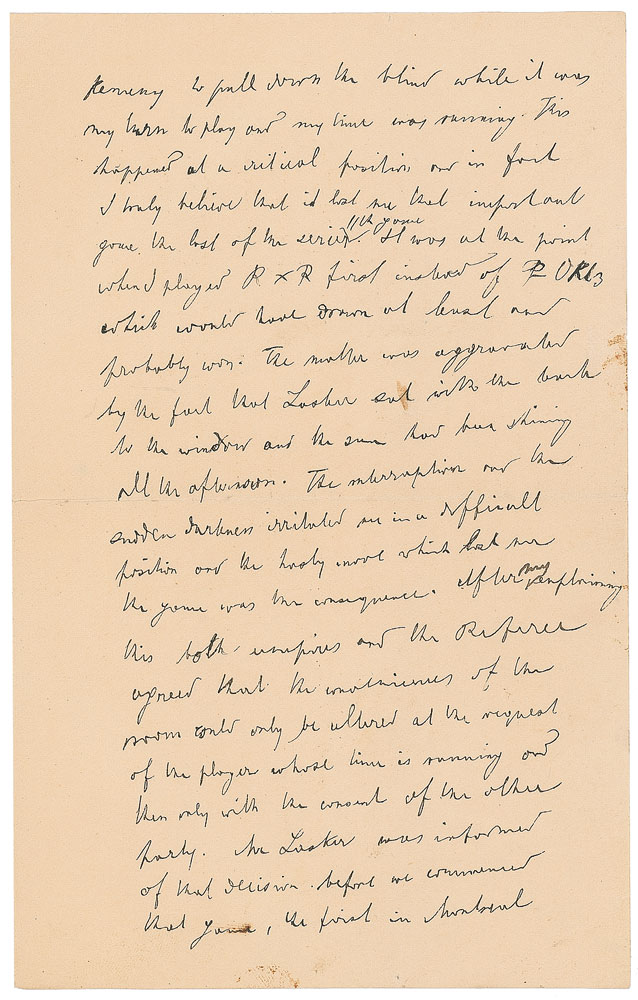 Kemeny to pull down the blind while it was
my turn to play and my time was running. This
happened at a critical position and in fact
I truly believe that it lost me that important
game, the last of the series. 11th game It was at the point
when I played R x R first instead of P QKt3
which would have drawn at least and
probably won. The matter was aggravated
by the fact that Lasker sat with the back
to the window and the sun had been shining
all the afternoon. The interruption and the
sudden darkness irritated me in a difficult
position and the hasty move which lost me
the game was the consequence. After my explaining
this both umpires and the Referee
agreed that the conveniences of the
room could only be altered at the request
of the player whose time is running and
then only with the consent of the other
party. Mr Lasker was informed
of that decision before we commenced
that game, the first in Montreal